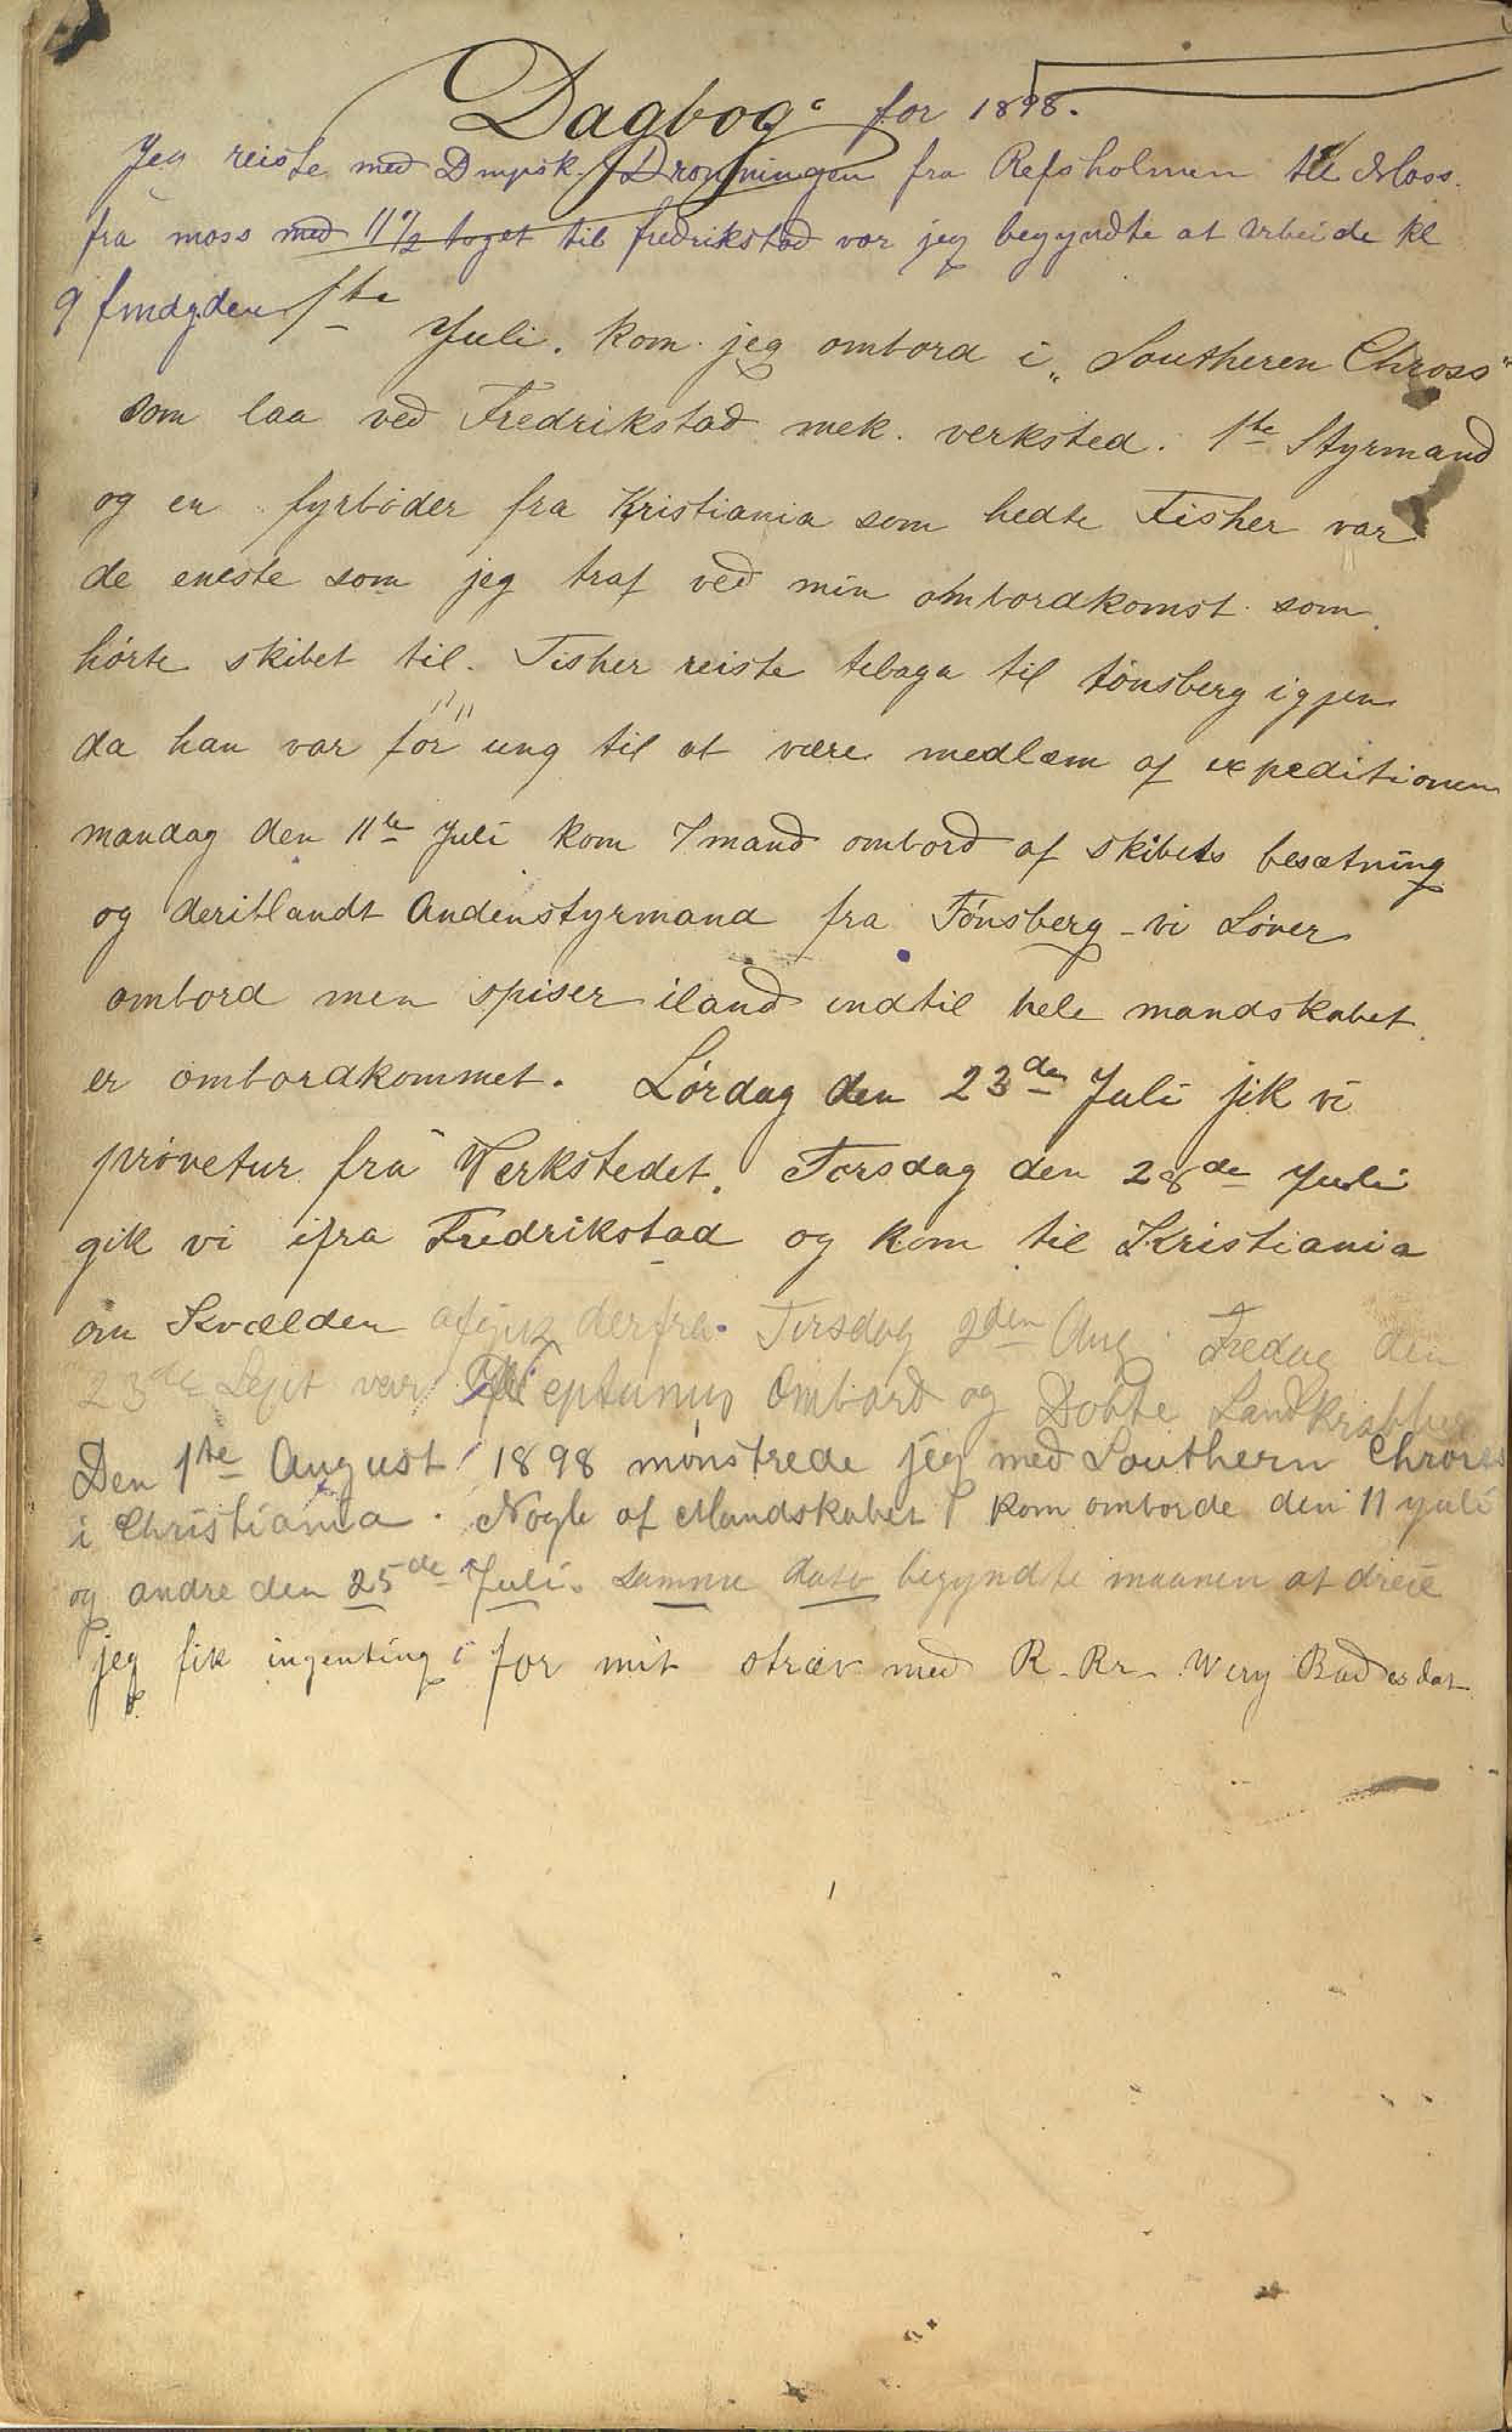 Dagbog for 1898.
Jeg reiste med Dmpsk. Dronningen fra Refsholmen til Moss.
fra moss med 11½ toget til fredrikstad vor jeg begyndte at arbeide kl
9 fmdg. den 1ste
Juli. Kom jeg ombord i „Southeren Chross"
som laa ved Fredrikstad mek. verksted. 1ste Styrmand
og en fyrbøder fra Kristiania som hedte Fisher var
de eneste som jeg traf ved min ombordkomst som
hørte skibet til. Fisher reiste tebage til tønsberg igjen
da han var for ung til at være medlem af expeditionen
mandag den 11te Juli kom 7 mand ombord af skibets besætning
og deriblandt Andenstyrmand fra Tønsberg - vi Løver
ombord men spiser iland indtil hele mandskabet
er ombordkommet. Lørdag den 23den Juli jik vi
prøvetur fra Verkstedet. Torsdag den 28de Juli
gik vi ifra Fredrikstad og kom til Kristiania
om Kvælden afgik derfra. Tirsdag 2den Aug. Fredag den
23de Sept var Neptunus Ombord og Døbte Landkrabber
Den 1ste August 1898 mønstrede jeg med Southern Chross
i Christiania. Nogle af Mandskabet kom omborde den 11 juli
og andre den 25de Juli. samme dato begyndte maanen at dreie
jeg fik ingenting for mit stræv med R. Rr. Wery Bad er dat